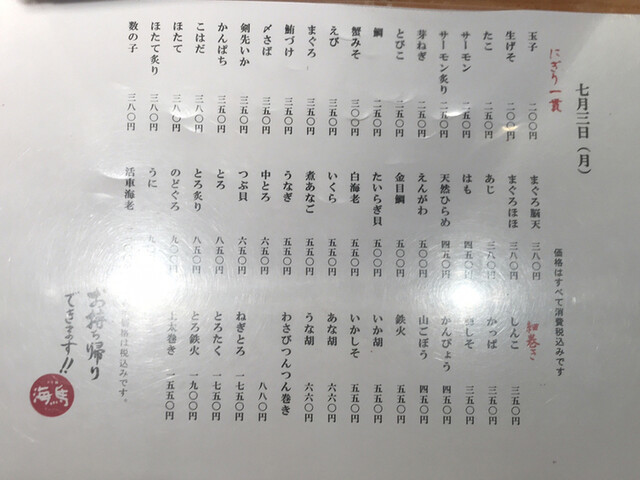 七月三日（月）
にぎり一貫
玉子 二〇〇円
生げそ 二〇〇円
たこ 二五〇円
サーモン 二五〇円
サーモン炙り 二五〇円
芽ねぎ 二五〇円
とびこ 二五〇円
鯛 二五〇円
蟹みそ 三〇〇円
えび 三五〇円
まぐろ 三五〇円
鮪づけ 三五〇円
〆さば 三五〇円
剣先いか 三五〇円
かんぱち 三五〇円
こはだ 三八〇円
ほたて 三八〇円
ほたて炙り 三八〇円
数の子 三八〇円
まぐろ脳天 三八〇円
まぐろほほ 三八〇円
あじ 三八〇円
はも 四五〇円
天然ひらめ 四五〇円
えんがわ 五〇〇円
金目鯛 五〇〇円
たいらぎ貝 五〇〇円
白海老 五五〇円
いくら 五五〇円
煮あなご 五五〇円
うなぎ 五五〇円
中とろ 六五〇円
つぶ貝 六五〇円
とろ 八五〇円
とろ炙り 八五〇円
のどぐろ 九〇〇円
うに
活車海老
価格はすべて消費税込みです
細巻き
しんこ 三五〇円
かっぱ 三五〇円
しそ 三五〇円
かんぴょう 四五〇円
山ごぼう 四五〇円
鉄火 五五〇円
いか胡 五五〇円
いかしそ 五五〇円
あな胡 六六〇円
うな胡 六六〇円
わさびつんつん巻き 八八〇円
ねぎとろ 一七五〇円
とろたく 一七五〇円
とろ鉄火 一九〇〇円
上太巻き 一五五〇円
は税込みです。
お持ち帰り
できます!!
海馬